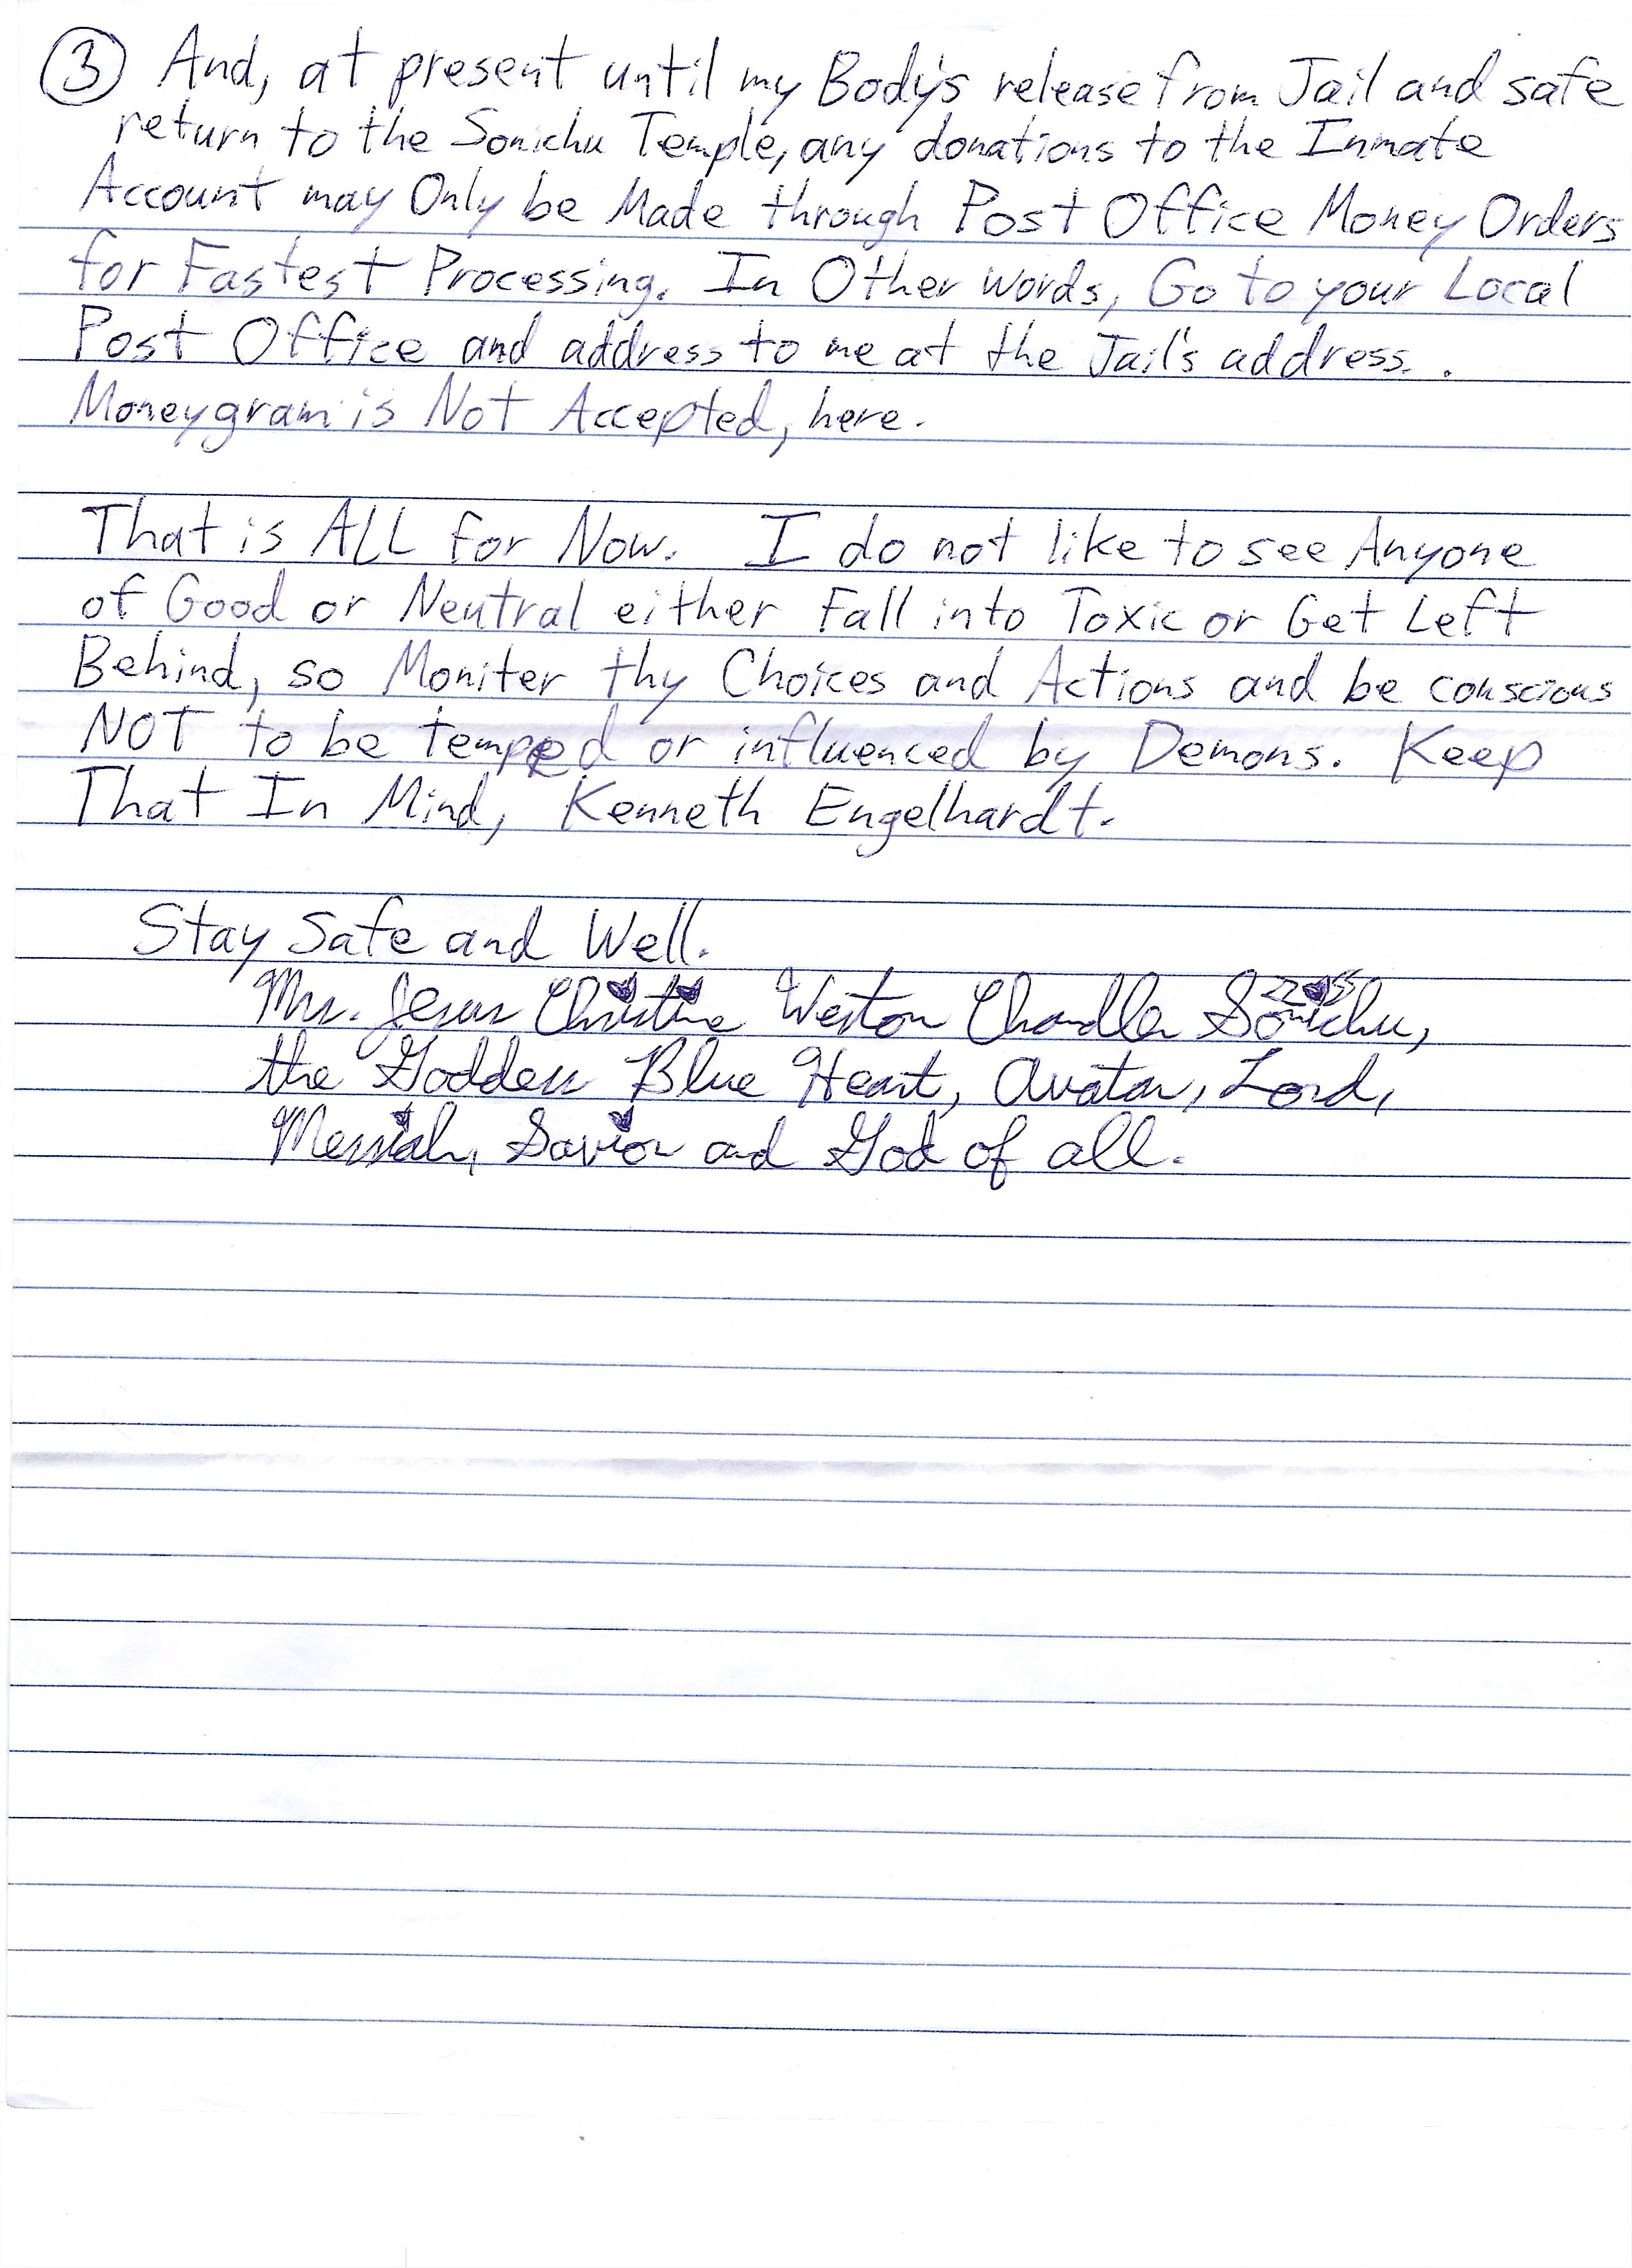 ③ And, at present until my Body's release from Jail and safe
return to the Sonichu Temple, any donations to the Inmate
Account may Only be Made through Post Office Money Orders
for Fastest Processing. In Other words, Go to your Local
Post Office and address to me at the Jail's address. .
Moneygram is Not Accepted, here.
That is ALL for Now. I do not like to see Anyone
of Good or Neutral either Fall into Toxic or Get Left
Behind, so Moniter thy Choices and Actions and be conscious
NOT to be temped or influenced by Demons. Keep
That In Mind, Kenneth Engelhardt.
Stay Safe and Well.
Mrs. Jesus Christine Weston Chandler Sonichu,
the Goddess Blue Heart, Avatar, Lord,
Messiah, Savior and God of all.